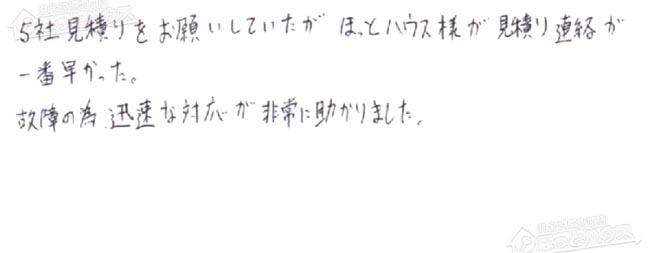 5社見積りをお願いしていたが ほっとハウス様が 見積り連絡が
一番早かった。
故障の為 迅速な対応が 非常に助かりました。
ほっとハウス